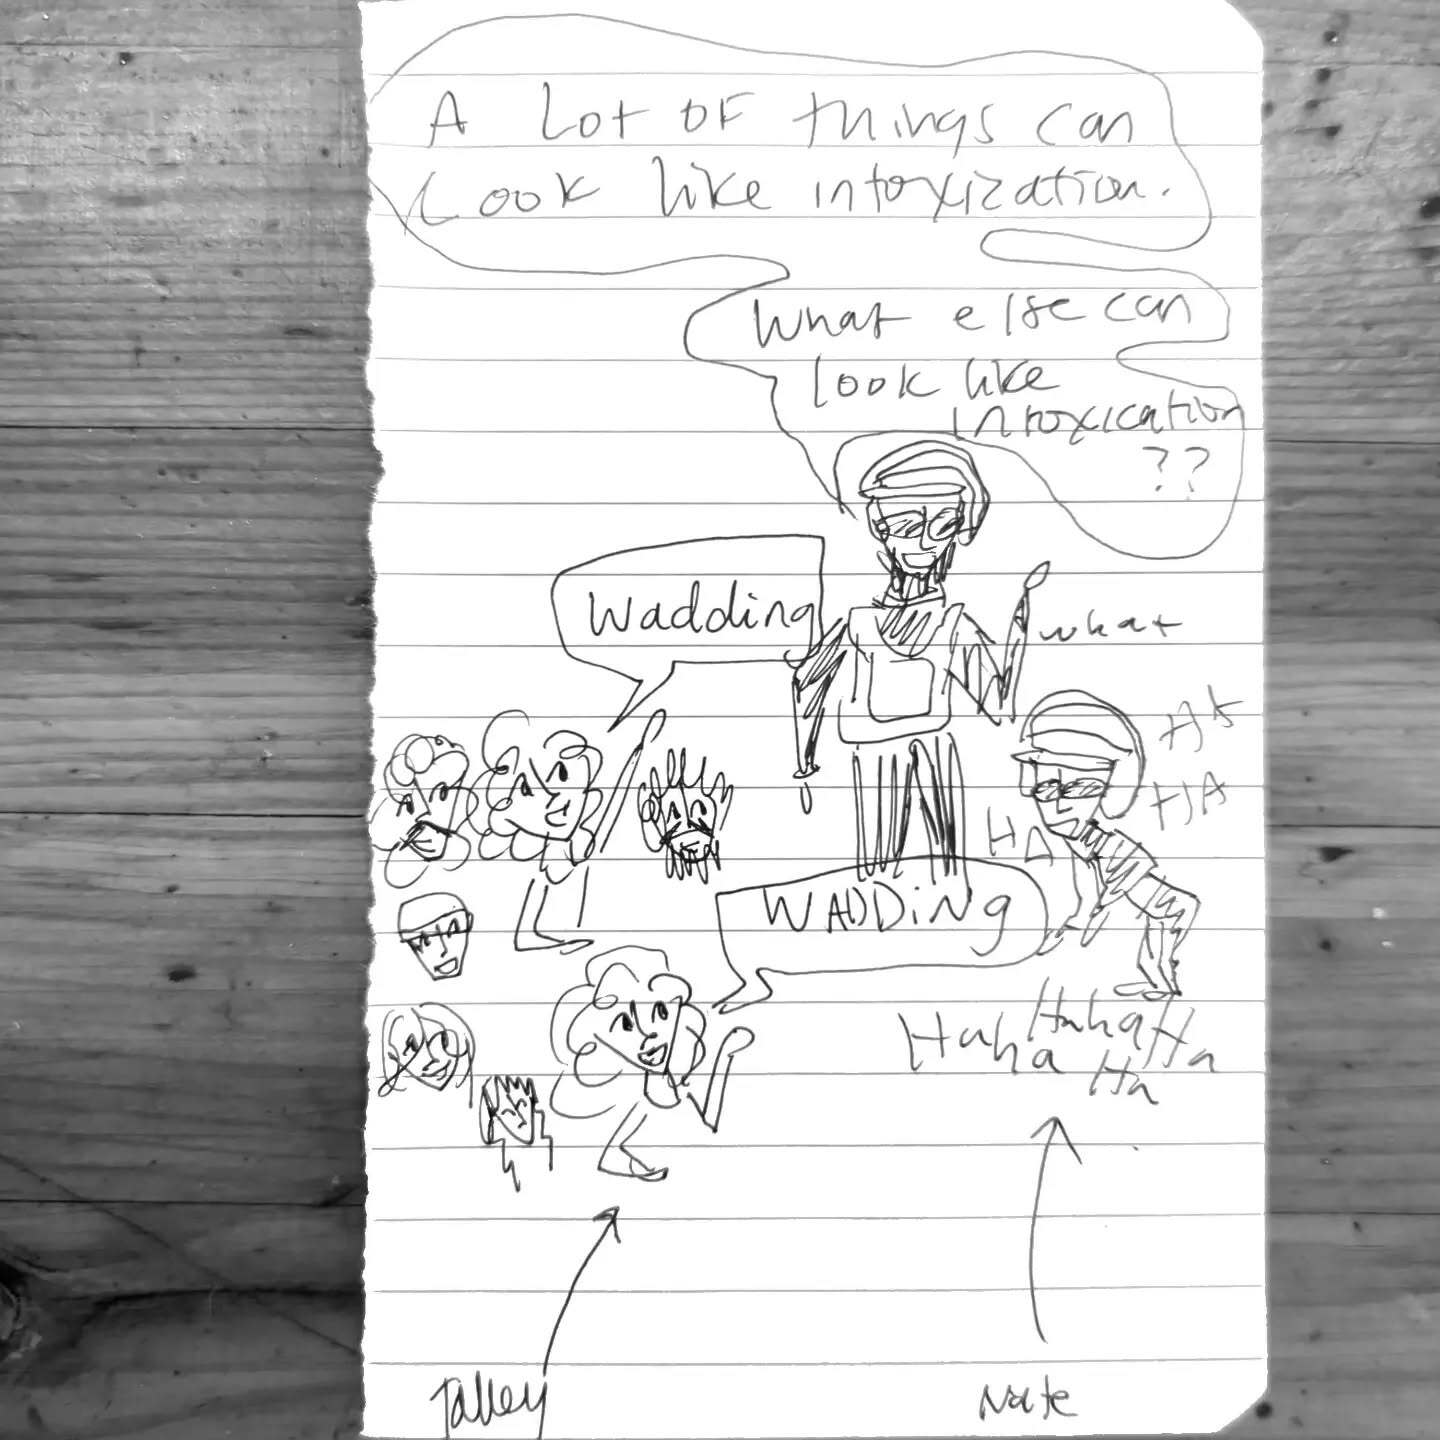 A Lot OF things can
Look like intoxization.
What else can
look like
intoxication
??
Wadding
what
HA
HA
HA
WADDiNg
Haha Haha Ha
Ha
Talley
Nate